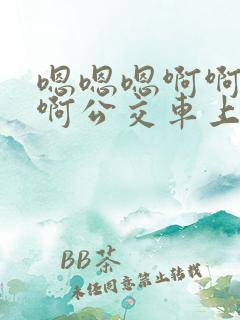 嗯嗯嗯啊啊
啊公交车上
BB茶
未经同意禁止转载